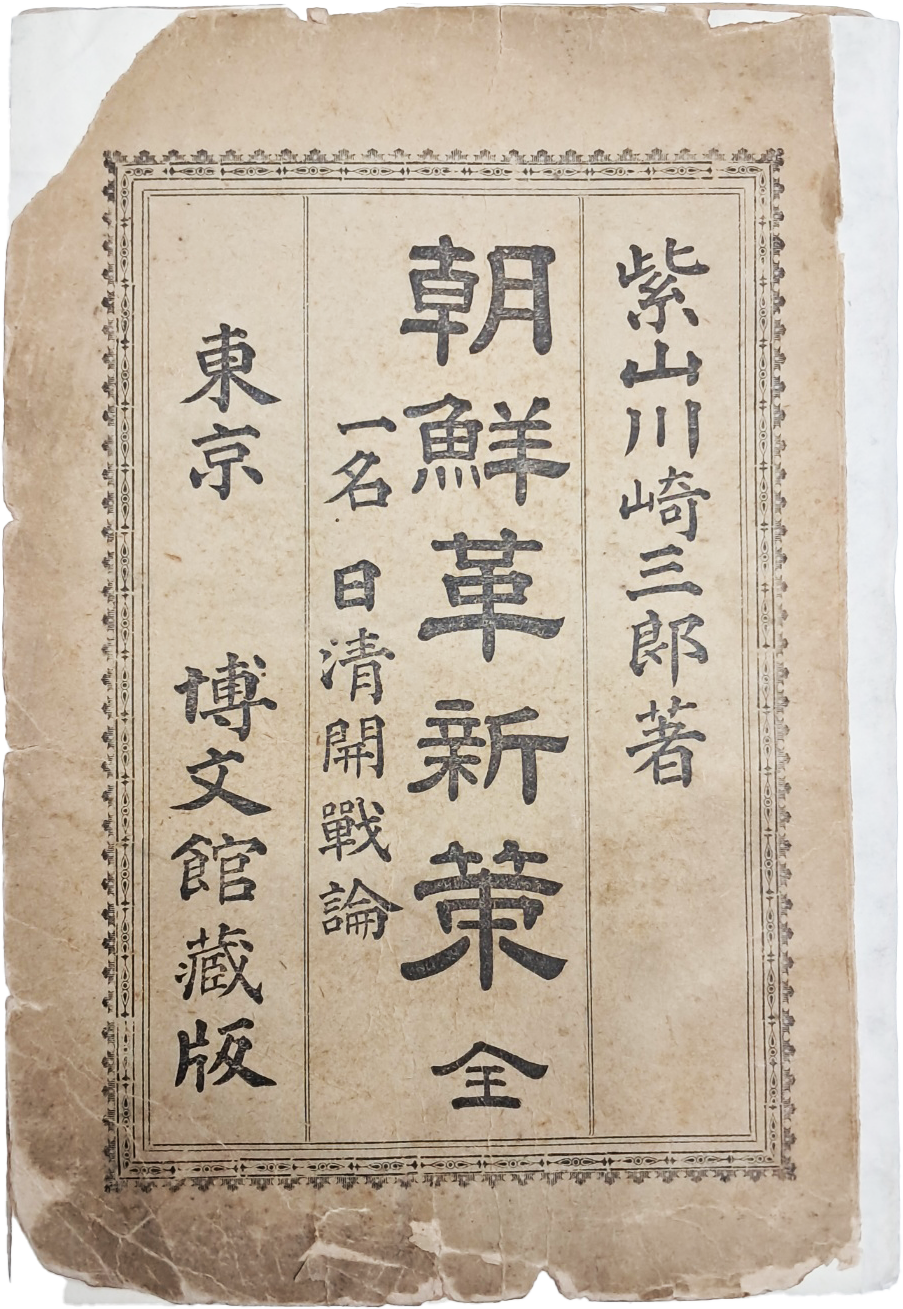 紫山川崎三郎著
朝鮮革新策 全
一名 日清開戰論
東京 博文館藏版